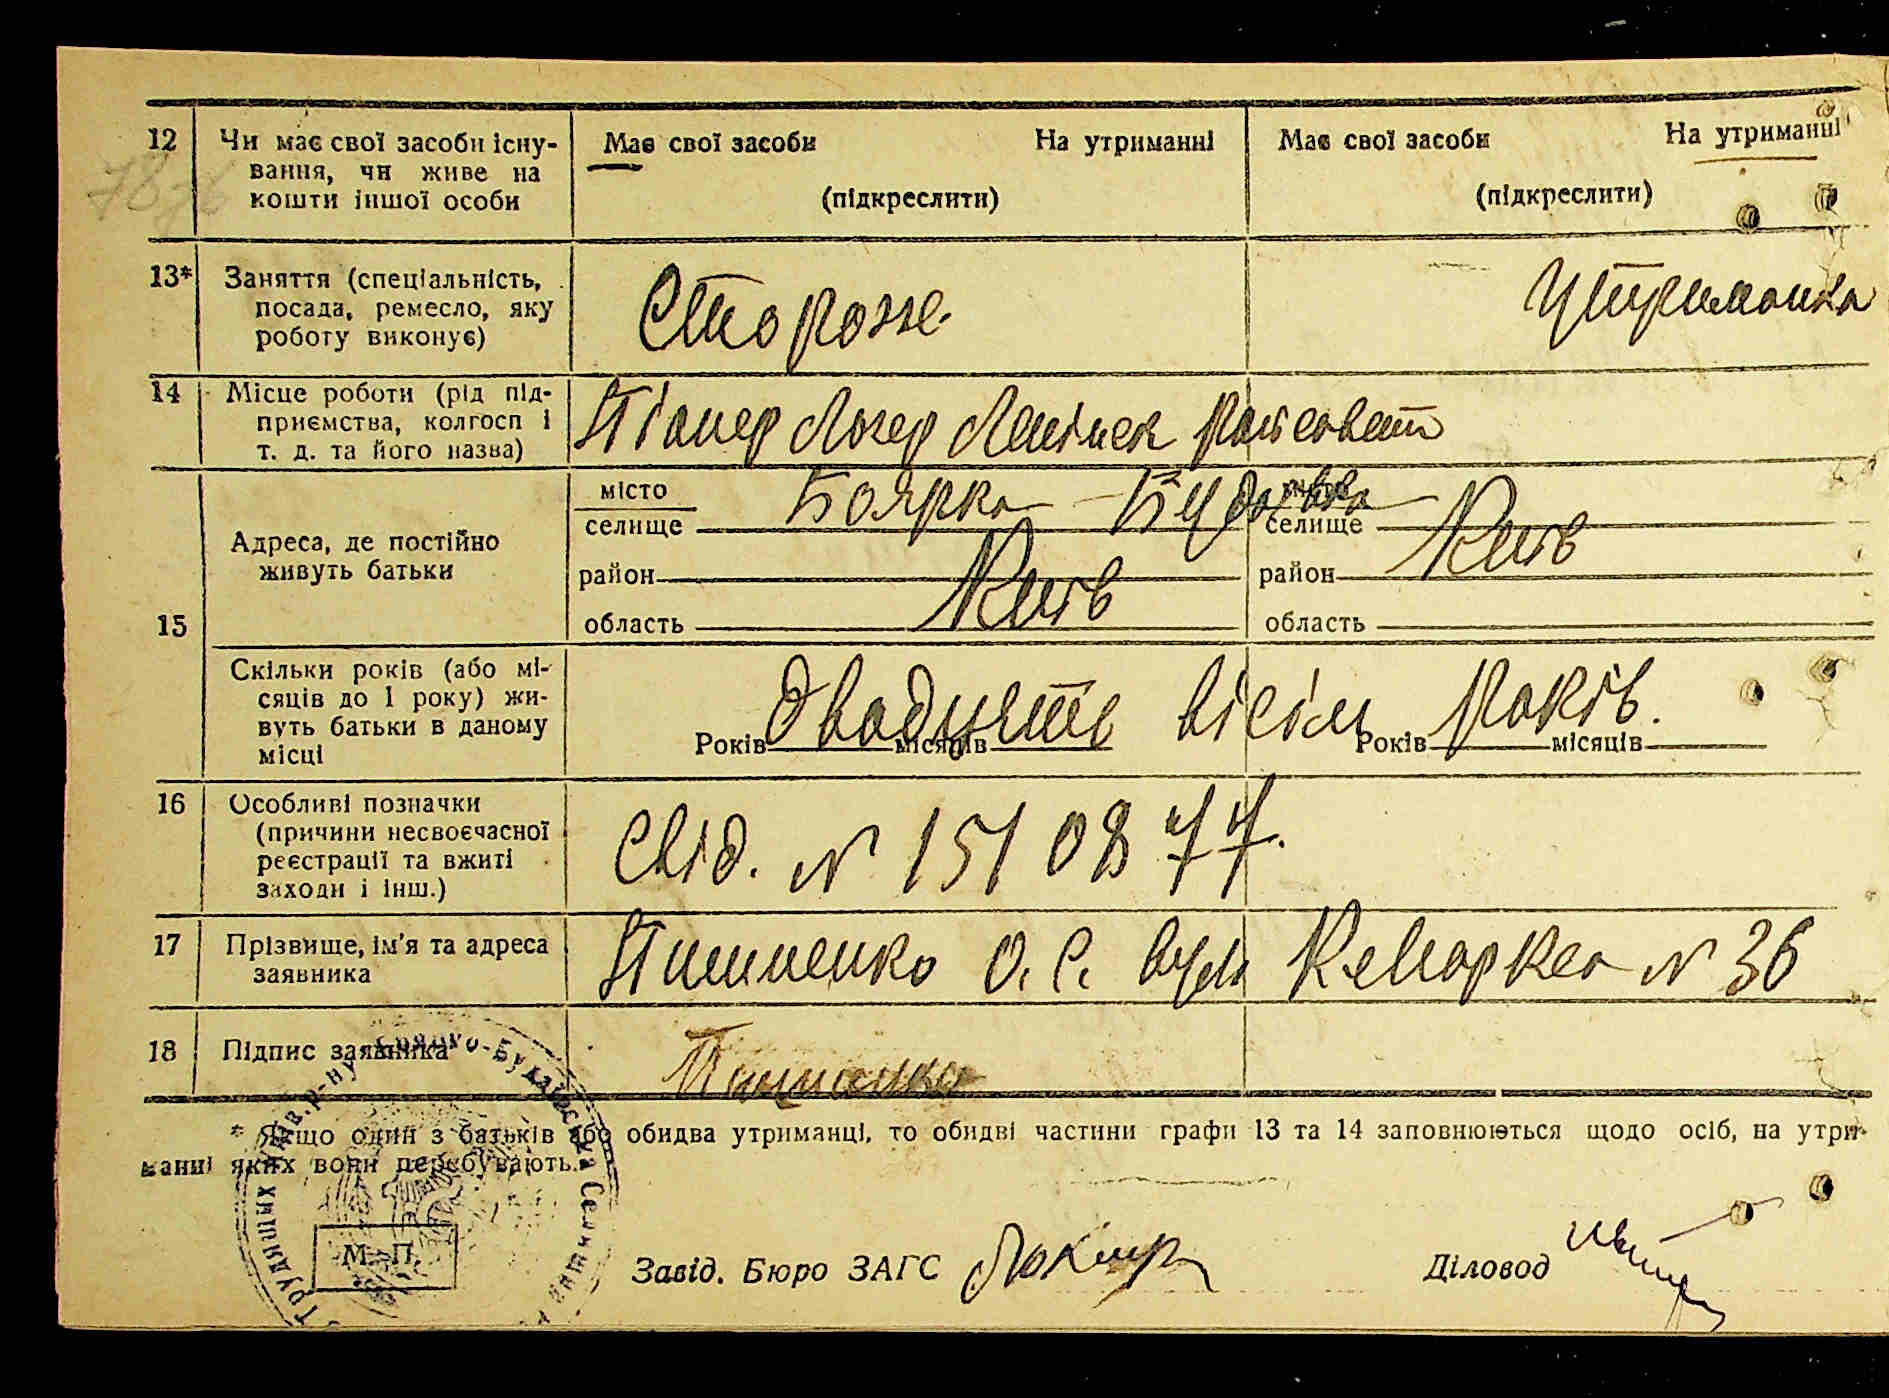 12 Чи має свої засоби існу-
вання, чи живе на
кошти іншої особи
Має свої засоби На утриманні
(підкреслити)
Має свої засоби На утриманні
(підкреслити)
13* Заняття (спеціальність,
посада, ремесло, яку
роботу виконує)
Сторож
Утриманка
14 Місце роботи (рід під-
приємства, колгосп і
т. д. та його назва)
Піонер Лагер Ленінск
15 Адреса, де постійно
живуть батьки
місто
селище Боярка - Будаївка
район
область Київ
селище
район Київ
область
Скільки років (або мі-
сяців до 1 року) жи-
вуть батьки в даному
місці
Років місяців
Двадцять вісім років.
Років місяців
16 Особливі позначки
(причини несвоєчасної
реєстрації та вжиті
заходи і інш.)
Свід. № 151 08 77.
17 Прізвище, ім'я та адреса
заявника
Пишненко О. С. вул К. Маркса № 36
18 Підпис заявника
* Якщо один з батьків або обидва утриманці, то обидві частини графи 13 та 14 заповнюються щодо осіб, на утри-
манні яких вони перебувають.
М. П.
Завід. Бюро ЗАГС
Діловод